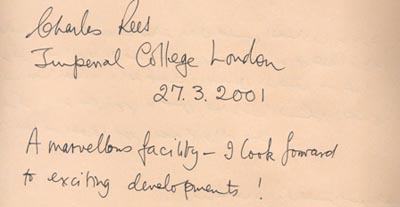 Charles Rees
Imperial College London
27.3.2001
A marvellous facility – I look forward
to exciting developments !